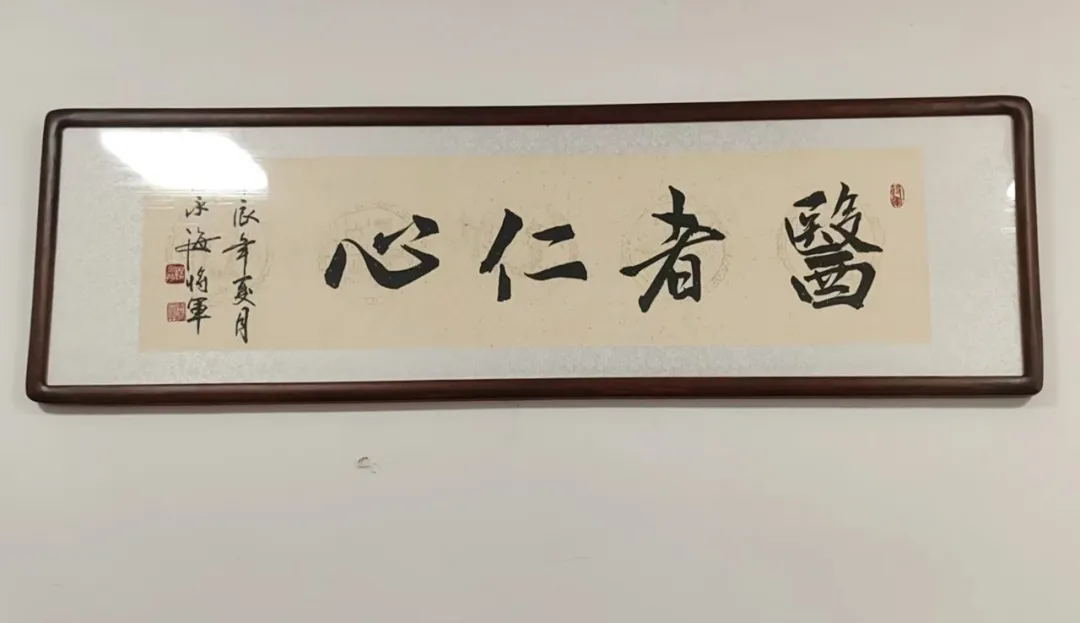 醫者仁心
辰年夏月
海将軍